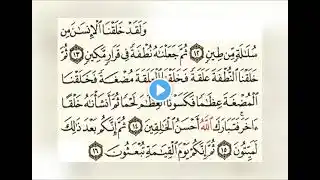 وَلَقَدْ خَلَقْنَا ٱلْإِنسَٰنَ مِن
سُلَٰلَةٍ مِّن طِينٍ ١٢ ثُمَّ جَعَلْنَٰهُ نُطْفَةً فِى قَرَارٍ مَّكِينٍ ١٣ ثُمَّ
خَلَقْنَا ٱلنُّطْفَةَ عَلَقَةً فَخَلَقْنَا ٱلْعَلَقَةَ مُضْغَةً فَخَلَقْنَا
ٱلْمُضْغَةَ عِظَٰمًا فَكَسَوْنَا ٱلْعِظَٰمَ لَحْمًا ثُمَّ أَنشَأْنَٰهُ خَلْقًا
ءَاخَرَ فَتَبَارَكَ ٱللَّهُ أَحْسَنُ ٱلْخَٰلِقِينَ ١٤ ثُمَّ إِنَّكُم بَعْدَ ذَٰلِكَ
لَمَيِّتُونَ ١٥ ثُمَّ إِنَّكُمْ يَوْمَ ٱلْقِيَٰمَةِ تُبْعَثُونَ ١٦